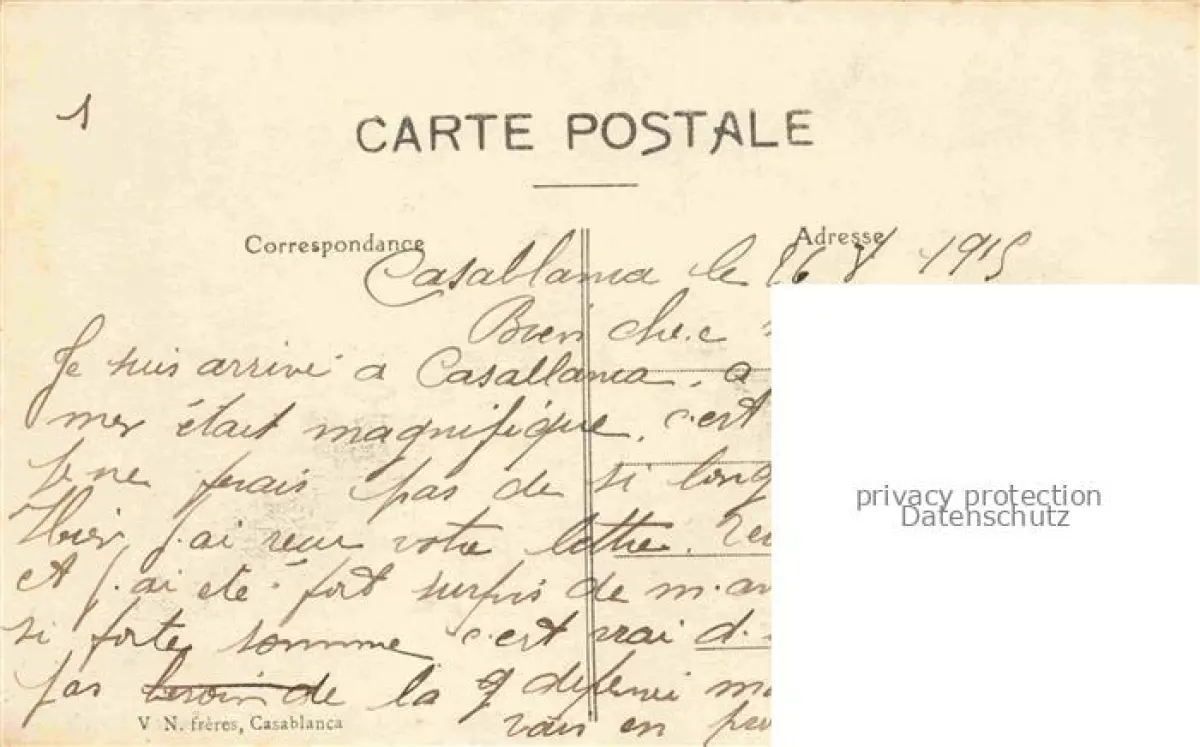 1
CARTE POSTALE
Correspondance
Adresse
Casablanca le 26 8 1915
Bien che.e
Je suis arrivé a Casablanca. a
mer était magnifique. c'est
je ne ferais pas de si long
Hier, j.ai recu votre lettre.
et j.ai eté fort surpris de m.av
si forte somme c.est vrai d.
pas besoin de la
vais en
V N. frères, Casablanca
privacy protection
Datenschutz